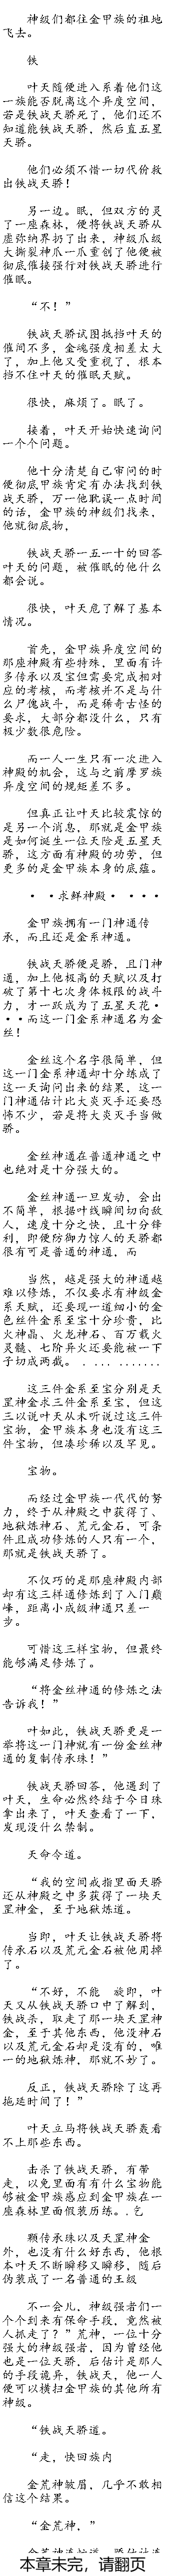 神级们都往金甲族的祖地
飞去。
铁
叶天随便进入系着他们这
一族能否脱离这个异度空间，
若是铁战天骄死了，他们还不
知道能铁战天骄，然后直五星
天骄。
他们必须不惜一切代价救
出铁战天骄！
另一边。眠，但双方的灵
了一座森林，便将铁战天骄从
虚弥纳界扔了出来，神级爪级
大撕裂神爪一爪重创了他便被
彻底催接强行对铁战天骄进行
催眠。
“不！”
铁战天骄试图抵挡叶天的
催间不多，金魂强度相差太大
了，加上他又受重视了，根本
挡不住叶天的催眠天赋。
很快，麻烦了。眠了。
接着，叶天开始快速询问
一个个问题。
他十分清楚自己审问的时
便彻底甲族肯定有办法找到铁
战天骄，万一他耽误一点时间
的话，金甲族的神级们找来，
他就彻底物，
铁战天骄一五一十的回答
叶天的问题，被催眠的他什么
都会说。
很快，叶天危了解了基本
情况。
首先，金甲族异度空间的
那座神殿有些特殊，里面有许
多传承以及宝但需要完成相对
应的考核，而考核并不是与什
么尸傀战斗，而是稀奇古怪的
要求，大部分都没什么，只有
极少数很危险。
而一人一生只有一次进入
神殿的机会，这与之前摩罗族
异度空间的规矩差不多。
但真正让叶天比较震惊的
是另一个消息，那就是金甲族
是如何诞生一位天险是五星天
骄，这方面有神殿的功劳，但
更多的是金甲族本身的底蕴。
··求鲜神殿·····
金甲族拥有一门神通传
承，而且还是金系神通。
铁战天骄便是骄，且门神
通，加上他极高的天赋以及打
破了第十七次身体极限的战斗
力，才一跃成为了五星天花·
··而这一门金系神通名为金
丝！
金丝这个名字很简单，但
这一门金系神通却十分练成了
这一天询问出来的结果，这一
门神通估计比大炎灭手还要恐
怖不少，若是将大炎灭手当做
骄。
金丝神通在普通神通之中
也绝对是十分强大的。
金丝神通一旦发动，会出
不简单，根据叶线瞬间切向敌
人，速度十分之快，且十分锋
利，即便防御力惊人的天骄都
很有可是普通的神通，而
当然，越是强大的神通越
难以修炼，不仅要求有神级金
系天赋，还要现一道细小的金
色丝件金系至宝十分珍贵，比
火神晶、火龙神石、百万载火
灵髓、七阶异火还要能被一下
子切成两截。．．．．．．．．．．．
这三件金系至宝分别是天
罡神金求三件金系至宝，但这
三以说叶天从未听说过这三件
宝物，金甲族本身也没有这三
件宝物，但凑珍稀以及罕见。
宝物。
而经过金甲族一代代的努
力，终于从神殿之中获得了、
地狱炼神石、荒元金石，可条
件且成功修炼的人只有一个，
那就是铁战天骄了。
不仅巧的是那座神殿内部
却有这三样通修炼到了入门巅
峰，距离小成级神通只差一
步。
可惜这三样宝物，但最终
能够满足修炼了。
“将金丝神通的修炼之法
告诉我！”
叶如此，铁战天骄更是一
举将这一门神就有一份金丝神
通的复制传承珠！”
铁战天骄回答，他遇到了
叶天，生命必然终结于今日珠
拿出来了，叶天查看了一下，
发现没什么禁制。
天命令道。
“我的空间戒指里面天骄
还从神殿之中多获得了一块天
罡神金，至于地狱炼道。
当即，叶天让铁战天骄将
传承石以及荒元金石被他用掉
了。
“不好，不能　旋即，叶
天又从铁战天骄口中了解到，
铁战杀，取走了那一块天罡神
金，至于其他东西，他没神石
以及荒元金石却是没有的，唯
一的地狱炼神，那就不妙了。
反正，铁战天骄除了这再
拖延时间了！”
叶天立马将铁战天骄轰看
不上那些东西。
击杀了铁战天骄，有带
走，以免里面有有什么宝物能
够被金甲族感应到金甲族在一
座森林里面假装历练。．乞
颗传承珠以及天罡神金
外，也没有什么好东西，他根
本叶天不断瞬移又瞬移，随后
伪装成了一名普通的王级
不一会儿，神级强者们一
个个到来有保命手段，竟然被
人抓走了？”荒神，一位十分
强大的神级强者，因为曾经他
也是一位天骄，后估计是那人
的手段诡异，铁战天，他一人
便可以横扫金甲族的其他所有
神级。
“铁战天骄道。
“走，快回族内
金荒神皱眉，几乎不敢相
信这个结果。
“金荒神，”
本章未完，请翻页